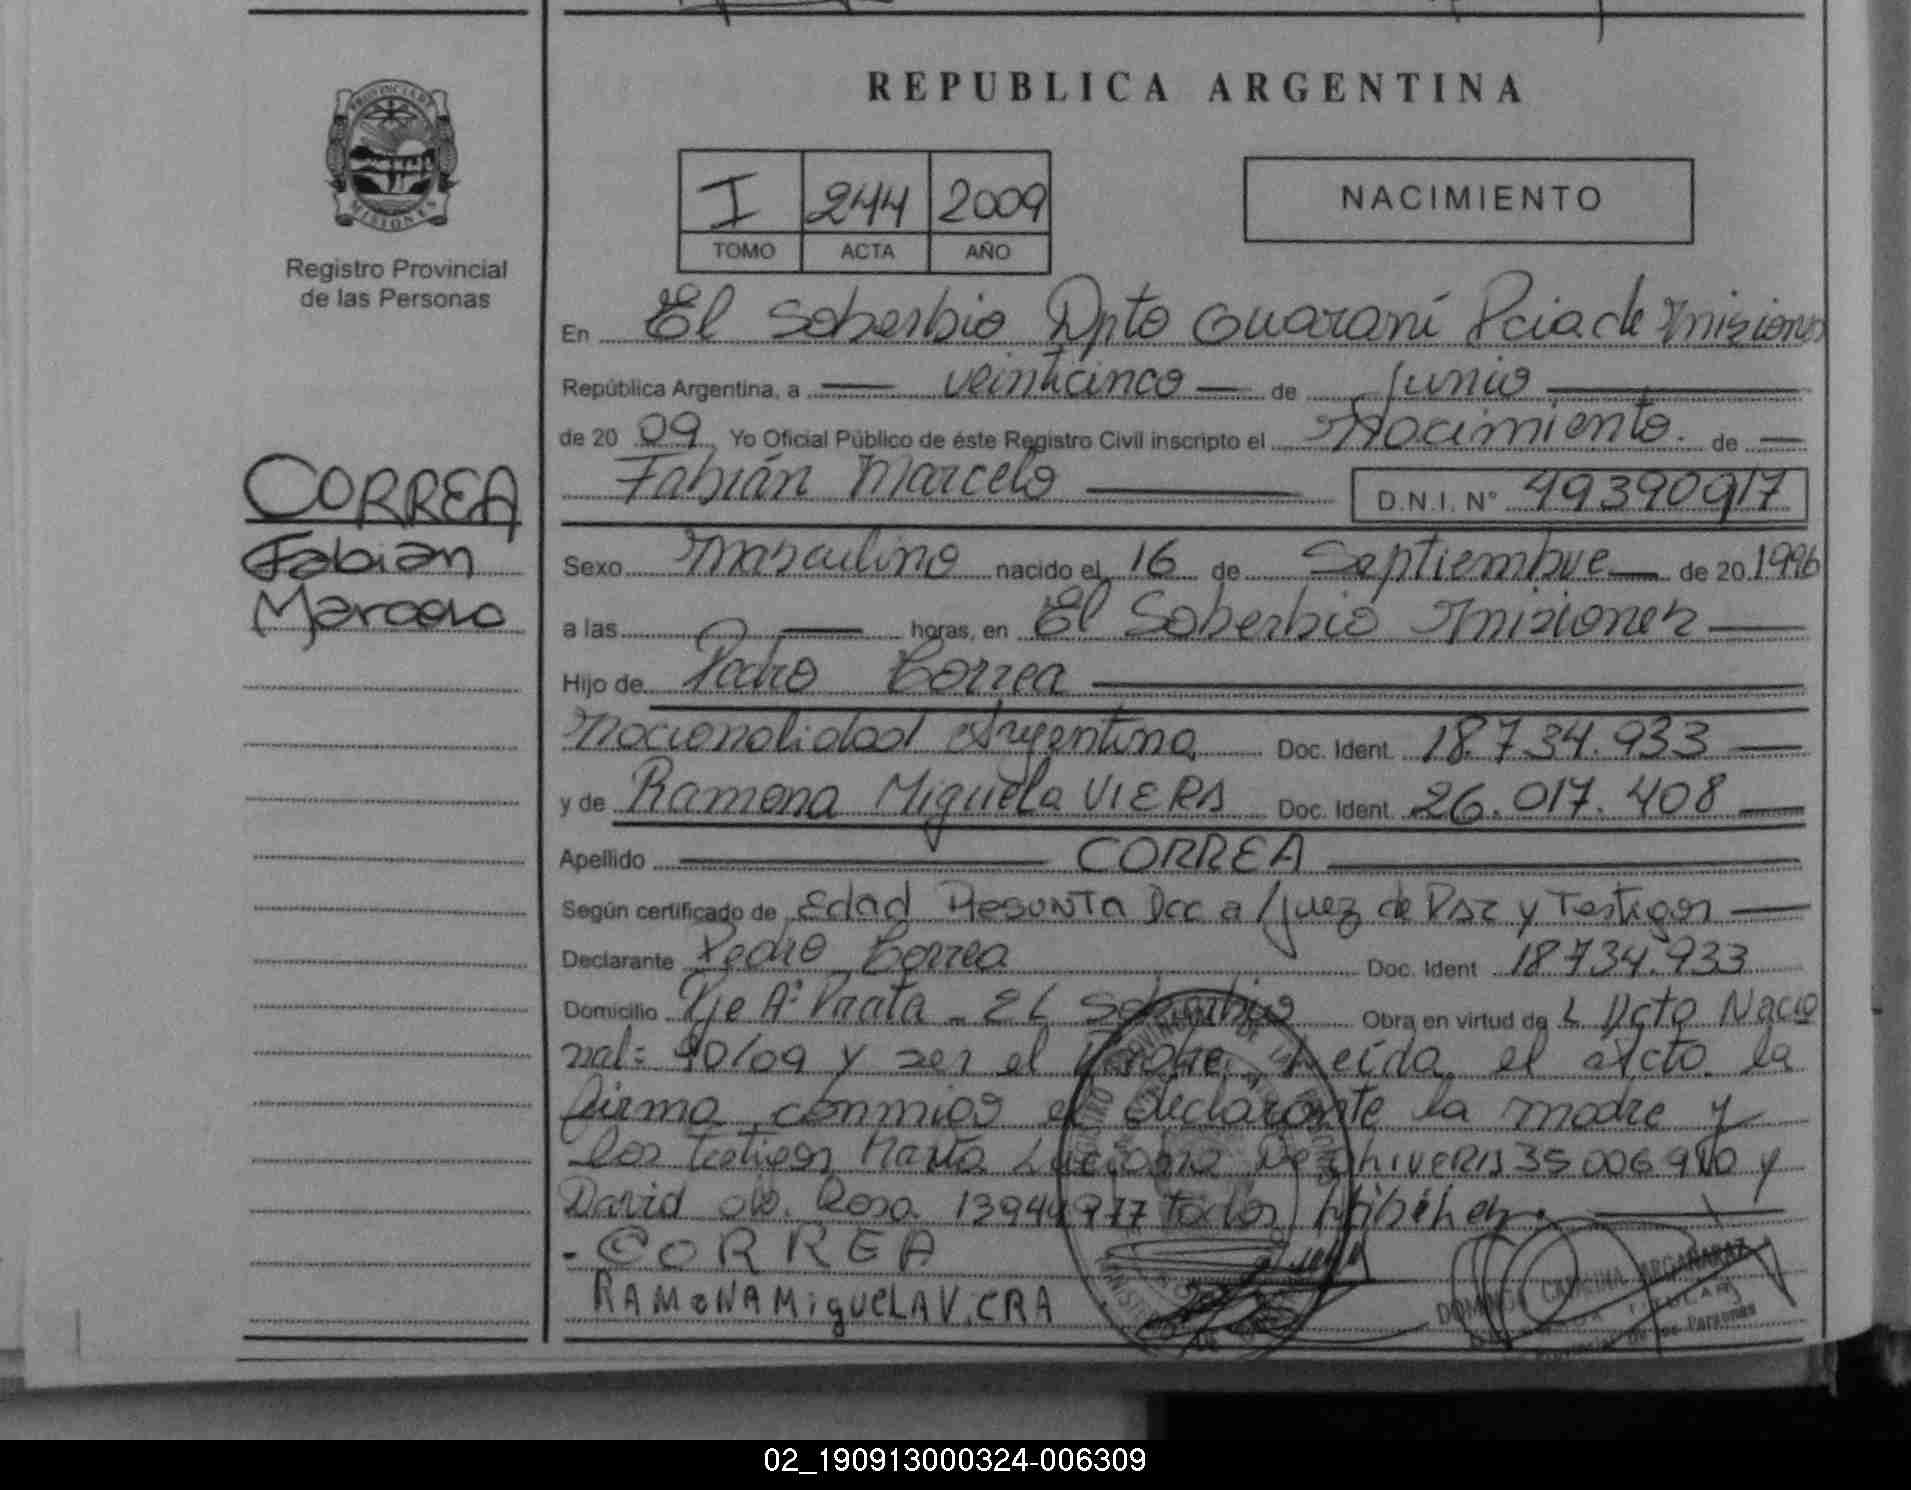 REPUBLICA ARGENTINA
PROVINCIA DE
MISIONES
Registro Provincial
de las Personas
I 244 2009
TOMO ACTA AÑO
NACIMIENTO
En El Soberbio Dpto Guaraní Pcia de Misiones
República Argentina, a veinticinco de junio
de 20 09 Yo Oficial Público de éste Registro Civil inscripto el Nacimiento. de
Fabián Marcelo D.N.I. N° 49390917
CORREA
Fabian
Marcelo
Sexo Masculino nacido el 16 de Septiembre de 20 1996
a las horas, en El Soberbio Misiones
Hijo de Pedro Correa
Nacionalidad Argentina Doc. Ident. 18.734.933
y de Ramona Miguela VIERA Doc. Ident. 26.017.408
Apellido CORREA
Según certificado de Edad Presunta Dcc a/juez de Paz y Testigos
Declarante Pedro Correa Doc. Ident 18.734.933
Domicilio Pje Aº Prata - El Soberbio Obra en virtud de L Dcto Nacio
nal: 90/09 y ser el Padre, Leída el Acta la
firma conmigo el declarante la madre y
los testigos Marta Luciana 35 006 910 y
David da Rosa 13944977 todos
- CORREA
RAMONA MiguELA ViERA
DOMINGA CATALINA ARGAÑARAZ
de las Personas
02_190913000324-006309